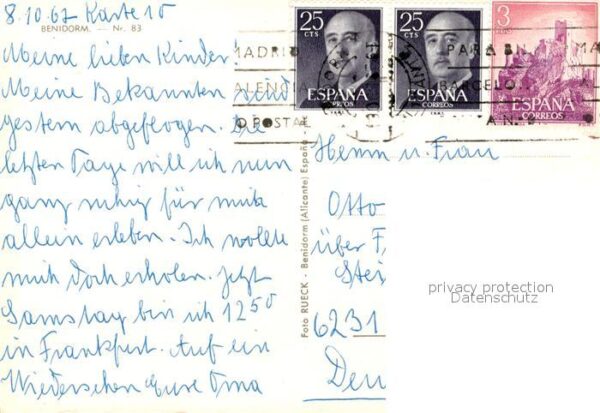 8.10.67 Karte 10
BENIDORM. — Nr. 83
Meine lieben Kinder
Meine Bekannten sind
gestern abgeflogen. Die
letzten Tage will ich nun
ganz ruhig für mich
allein erleben. Ich wollte
mich doch erholen. Jetzt
Samstag bin ich 12 50
in Frankfurt. Auf ein
Wiedersehen Eure Oma
Foto RUECK - Benidorm (Alicante) España
25
CTS
ESPAÑA
CORREOS
25
CTS
ESPAÑA
CORREOS
3
ESPAÑA
CORREOS
MADRID
ALENCIA
POSTA
PARA
BARCELO
MA
Herrn u. Frau
Otto
über F
Stei
6231
Deu
privacy protection
Datenschutz